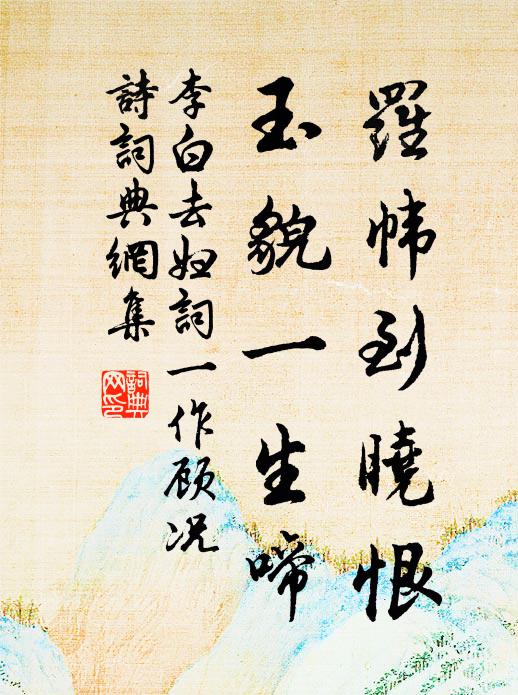 羅幃到曉恨
玉貌一生啼
李白去妇詞一作顾况
詩詞典網集
詞典网印